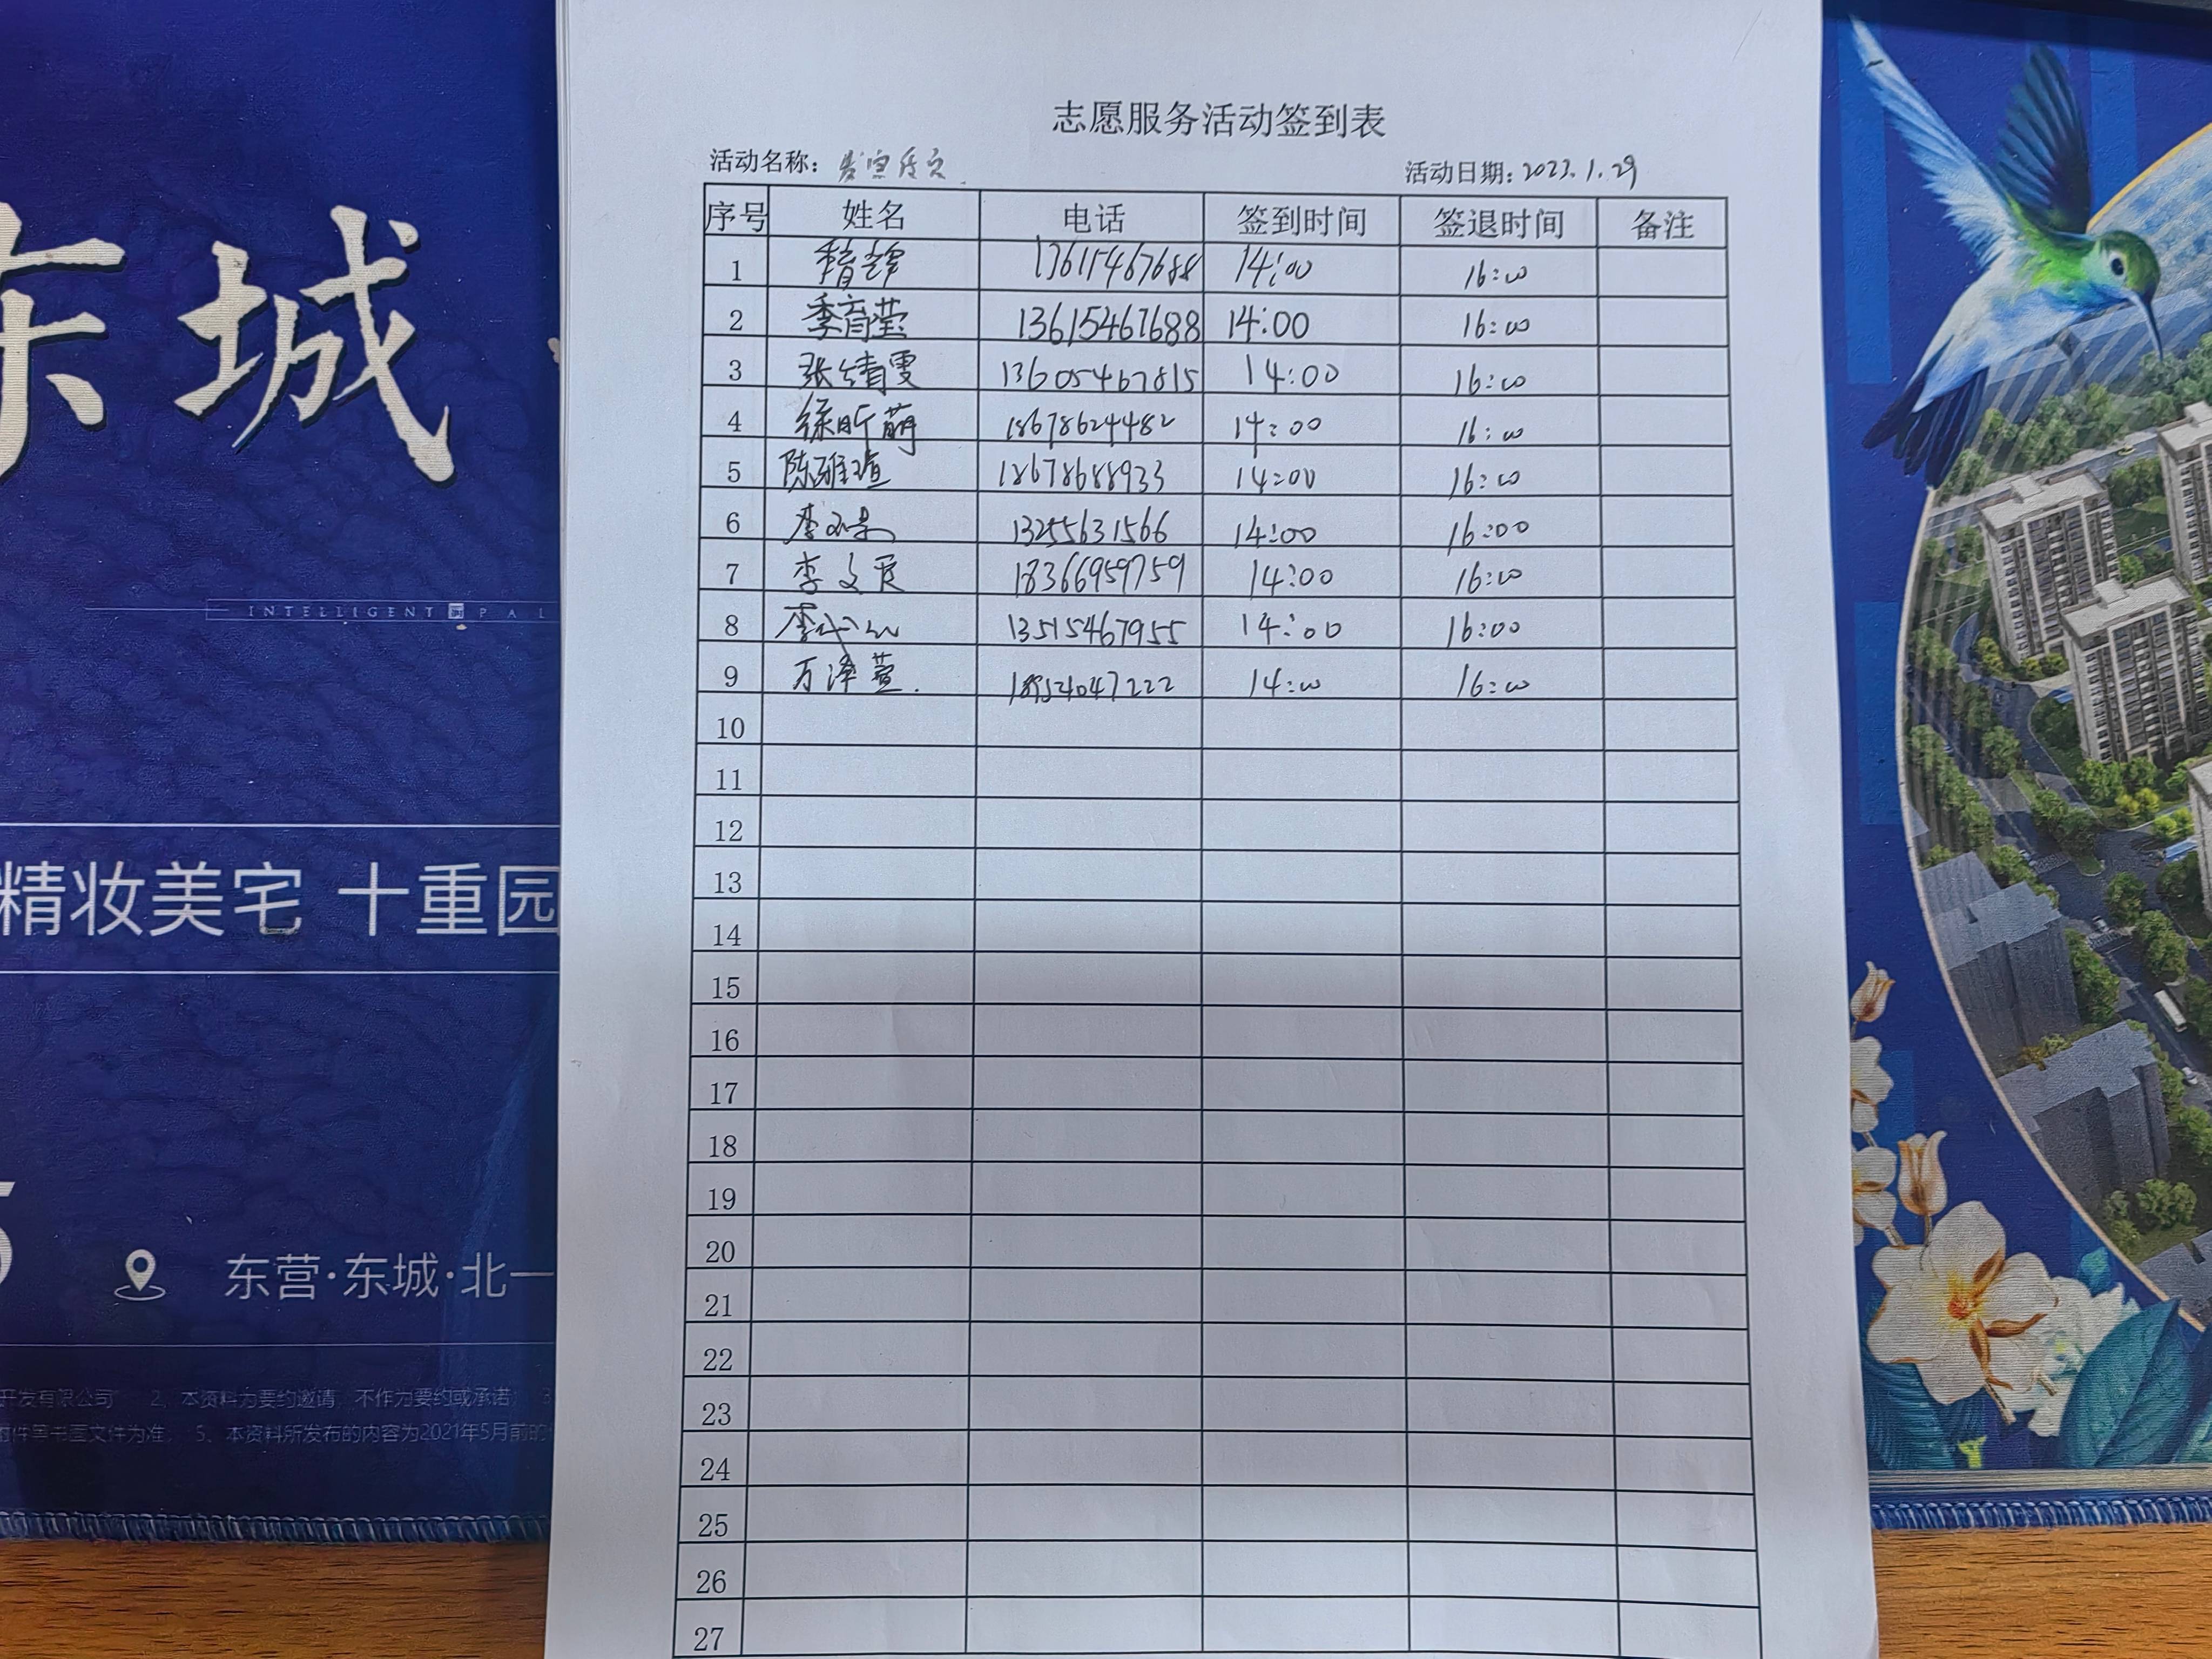 志愿服务活动签到表
活动名称:
活动日期: 2023.1.29
序号 姓名 电话 签到时间 签退时间 备注
1 13615467688 14:00 16:00
2 季育莹 13615467688 14:00 16:00
3 张婧雯 13605467815 14:00 16:00
4 徐昕萌 18678624482 14:00 16:00
5 陈雅瑄 18678688933 14:00 16:00
6 13255631566 14:00 16:00
7 李文 18366959759 14:00 16:00
8 李 13515467955 14:00 16:00
9 万泽萱. 14:00 16:00
10
11
12
13
14
15
16
17
18
19
20
21
22
23
24
25
26
27
东城
INTELLIGENT PAL
精妆美宅 十重园
5
东营·东城·北一
开发有限公司 2、本资料为要约邀请,不作为要约或承诺; 3
附件等书面文件为准; 5、本资料所发布的内容为2021年5月前的